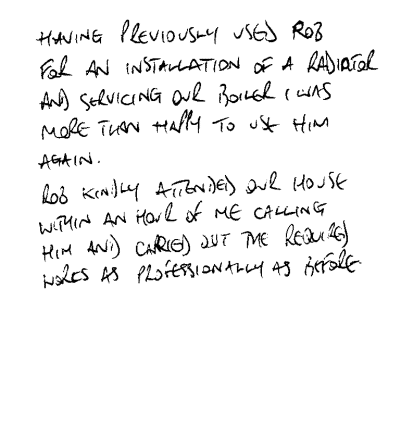 HAVING PREVIOUSLY USED ROB
FOR AN INSTALLATION OF A RADIATOR
AND SERVICING OUR BOILER I WAS
MORE THAN HAPPY TO USE HIM
AGAIN.
ROB KINDLY ATTENDED OUR HOUSE
WITHIN AN HOUR OF ME CALLING
HIM AND CARRIED OUT THE REQUIRED
WORKS AS PROFESSIONALLY AS BEFORE.